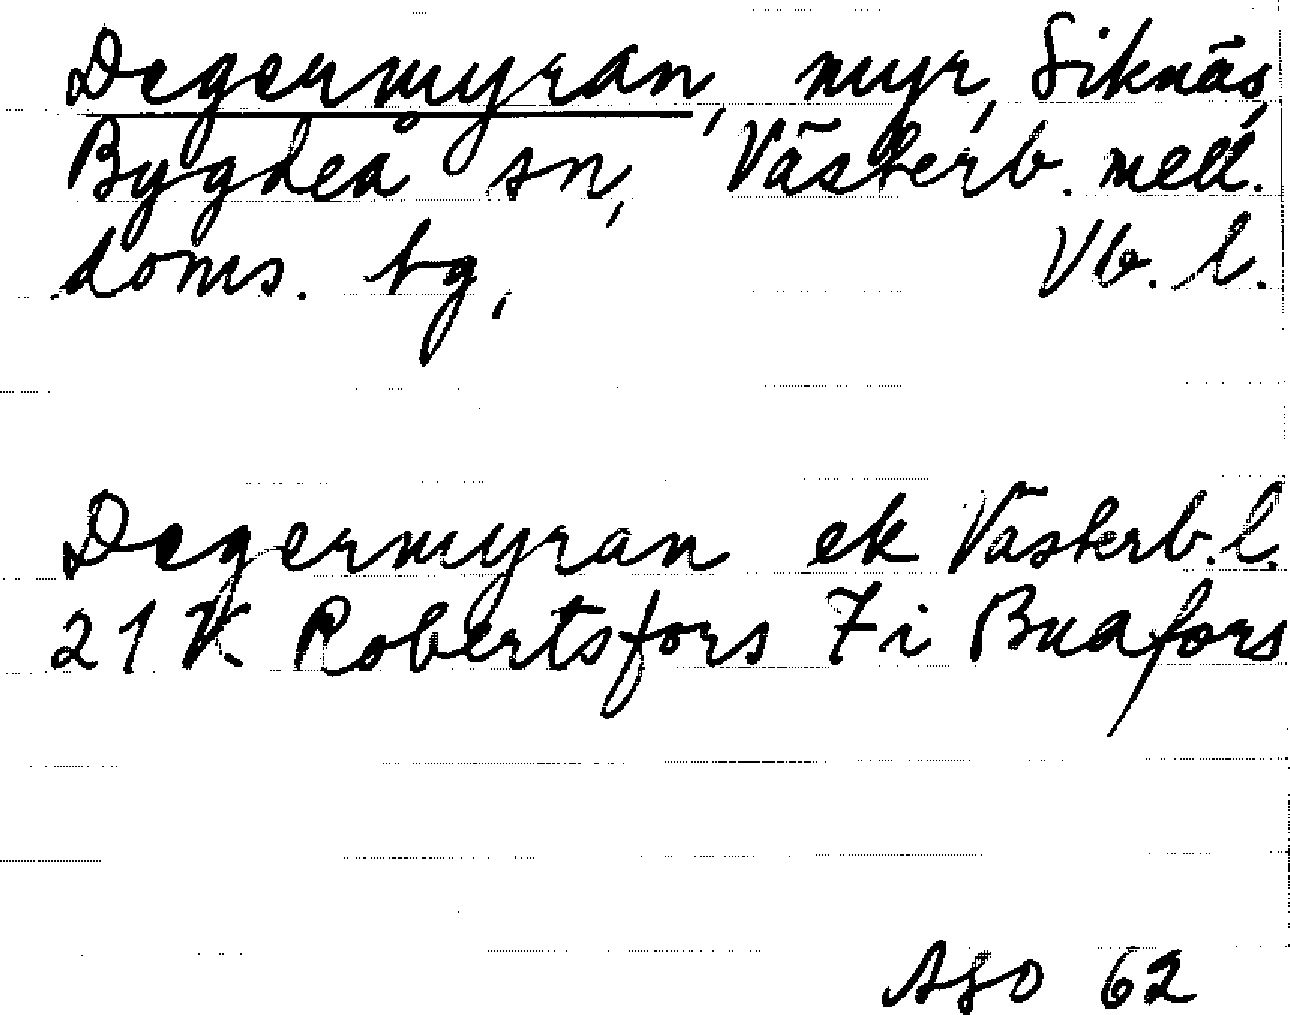 Degermyran, myr, Siknäs,
Bygdeå sn, Västerb. mell.
doms. tg, Vb. l.
Degermyran ek Västerb. l.
21 K Robertsfors 7 i Buafors
ASO 62